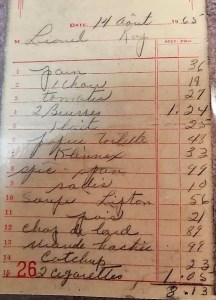 DATE. 14 Août 1965
M Lionel Roy
ACCT. FWD.
1 pain 36
2 1 Chair 19
3 tomates 27
4 2 Beurres 1.24
5 1 lait 25
6 papier toilette 48
7 Kleenex 33
8 spic span 99
9 radis 10
10 Soupe Lipton 56
11 pois 21
12 chop d lard 89
13 viande hachée 99
14 Catchup 23
15 2 cigarettes 1.05
26 8.13